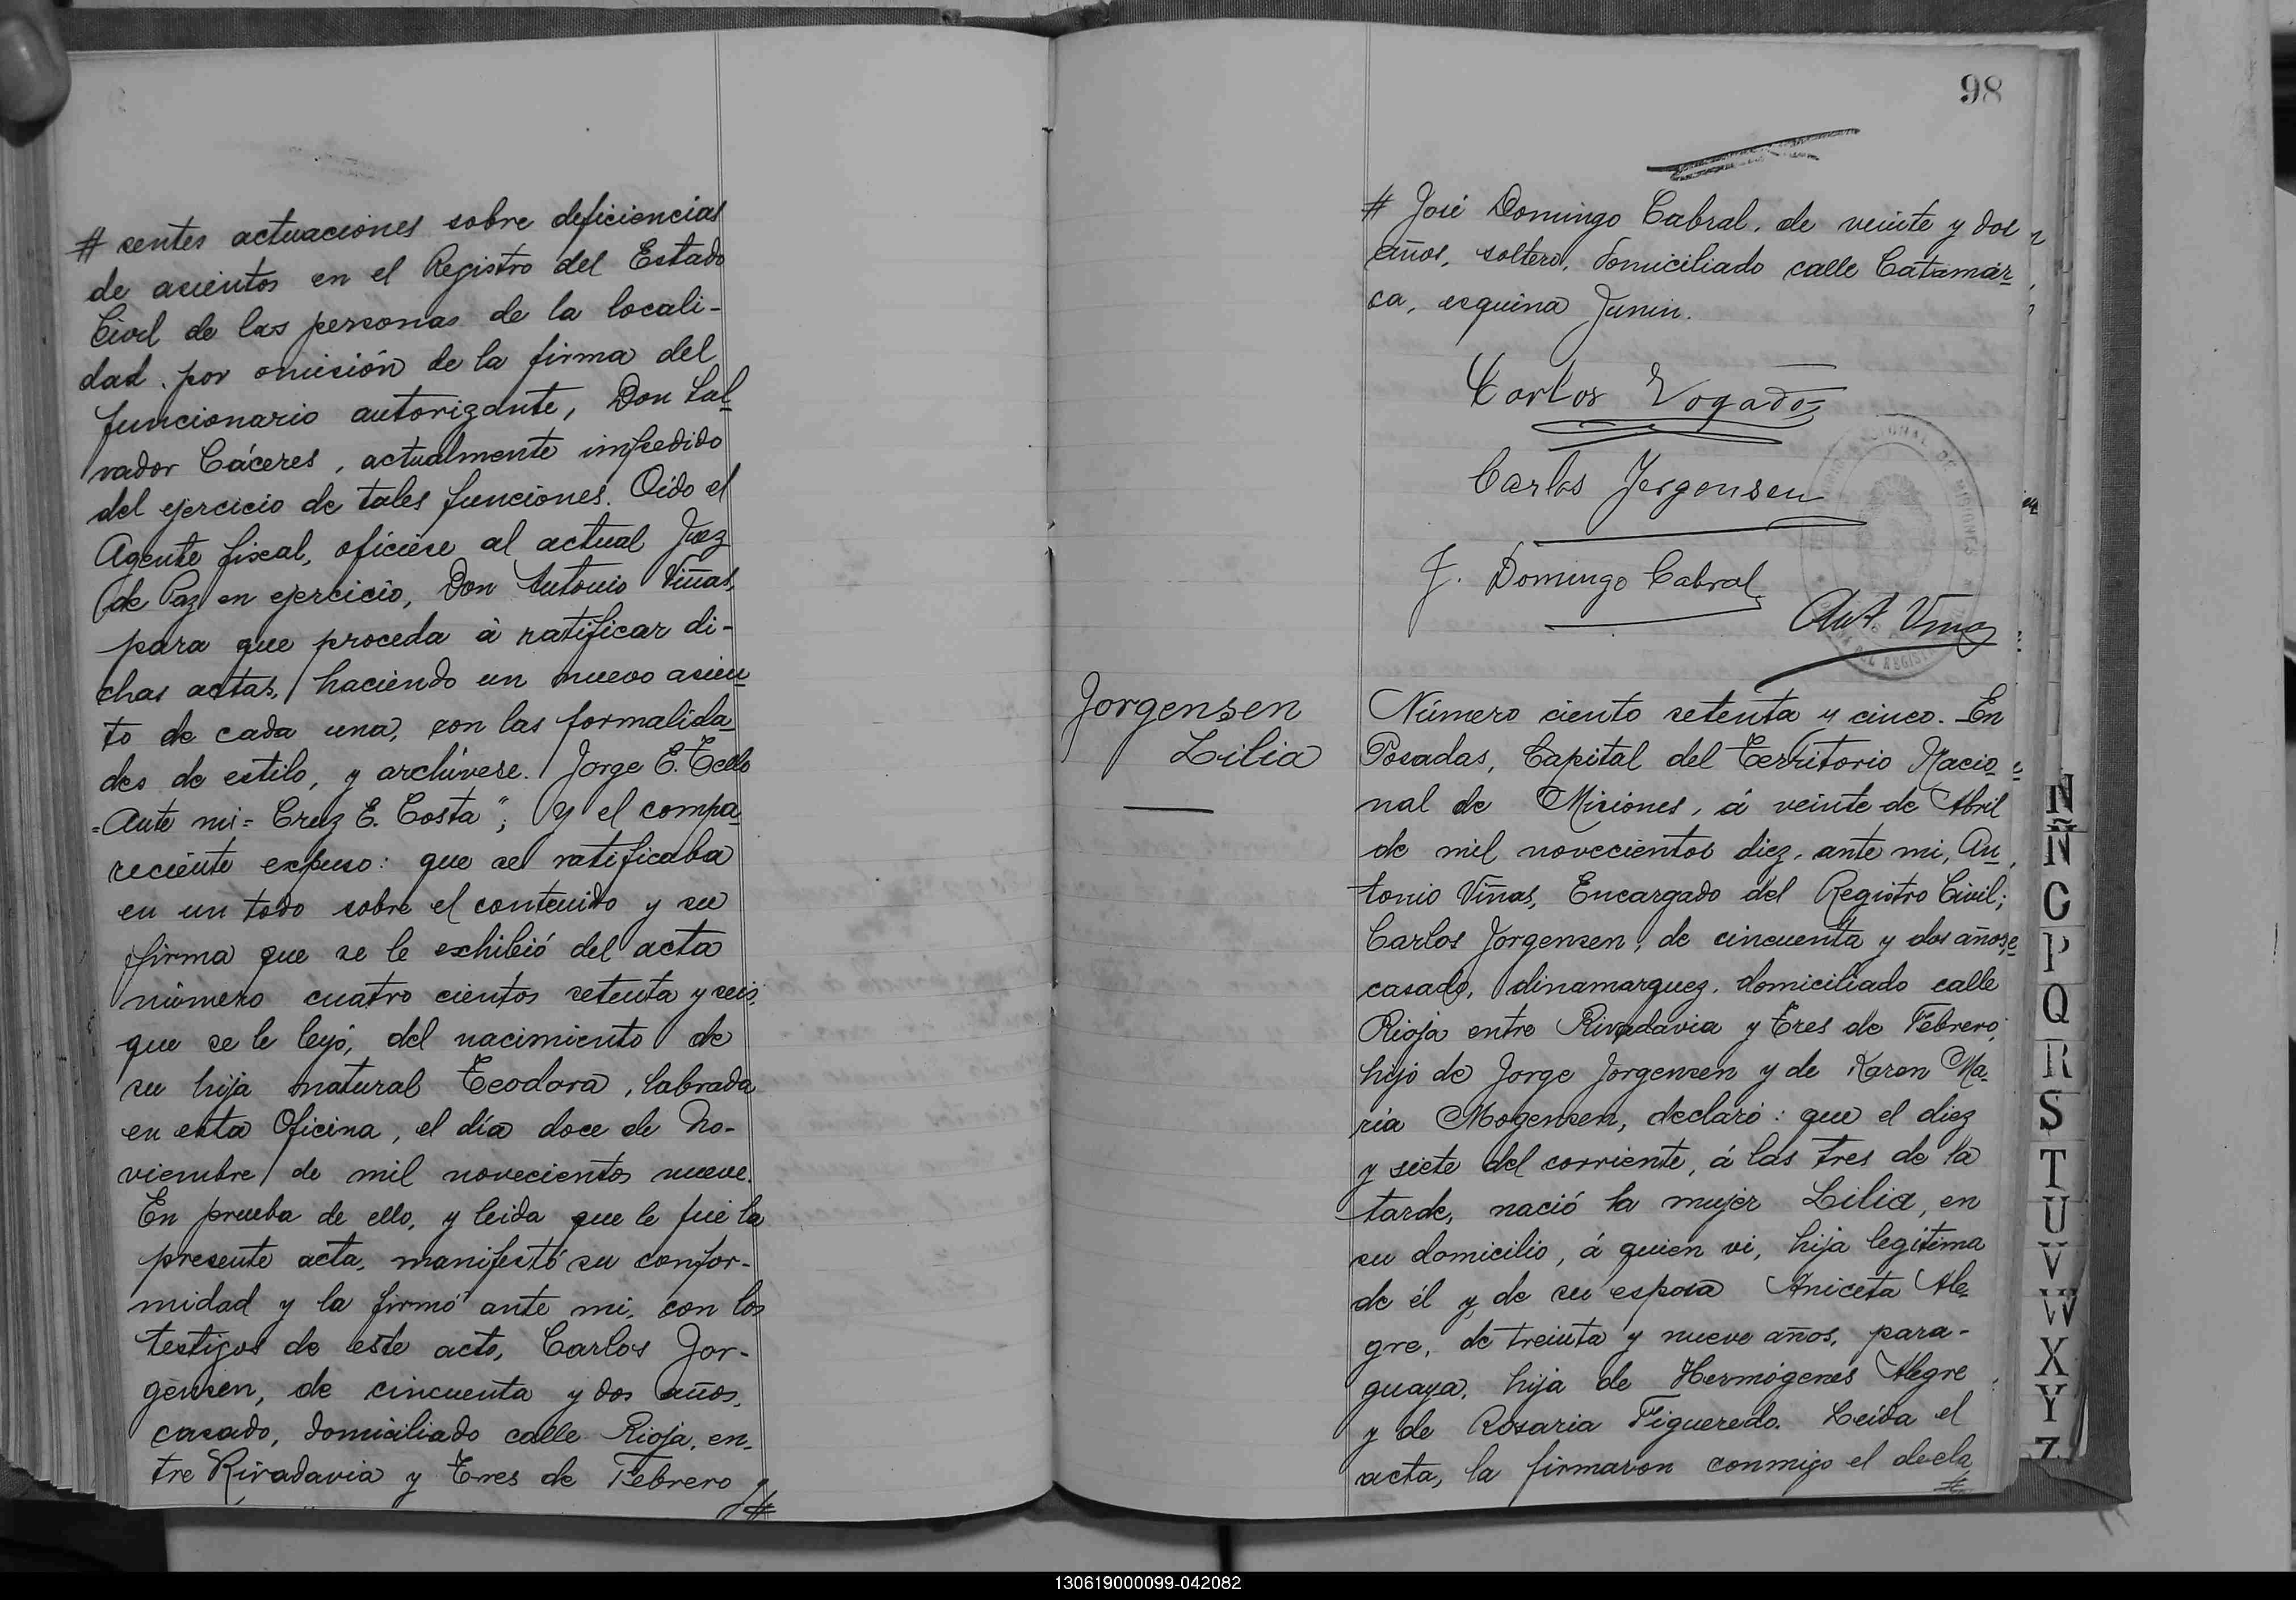 # sentes actuaciones sobre deficiencias
de asientos en el Registro del Estado
Civil de las personas de la locali-
dad, por omisión de la firma del
funcionario autorizante, Don Sal
vador Cáceres, actualmente impedido
del ejercicio de tales funciones. Oido el
Agente fiscal, ofíciese al actual Juez
de Paz en ejercicio, Don Antonio Viñas,
para que proceda á ratificar di-
chas actas, haciendo un nuevo asien
to de cada una, con las formalida
des de estilo, y archívese. Jorge E. Tello
=Ante mi= Cruz E. Costa"; Y el compa
reciente expuso: que se ratificaba
en un todo sobre el contenido y su
firma que se le exhibió del acta
número cuatro cientos setenta y seis,
que se le leyó, del nacimiento de
su hija natural Teodora, labrada
en esta Oficina, el día doce de No-
viembre de mil novecientos nueve.
En prueba de ello, y leida que le fué la
presente acta, manifestó su confor-
midad y la firmó ante mi, con los
testigos de este acto, Carlos Jor-
gensen, de cincuenta y dos años,
casado, domiciliado calle Rioja, en-
tre Rivadavia y Tres de Febrero y
#
98
# José Domingo Cabral, de veinte y dos
años, soltero, domiciliado calle Catamar
ca, esquina Junin.
Carlos Vogado
Carlos Jorgensen
J. Domingo Cabral
Ant Viñas
Jorgensen
Lilia
Número ciento setenta y cinco. En
Posadas, Capital del Territorio Nacio
nal de Misiones, á veinte de Abril
de mil novecientos diez, ante mi, An
tonio Viñas, Encargado del Registro Civil;
Carlos Jorgensen, de cincuenta y dos años,
casado, dinamarquez, domiciliado calle
Rioja entre Rivadavia y Tres de Febrero,
hijo de Jorge Jorgensen y de Karen Ma-
ria Mogensen, declaró: que el diez
y siete del corriente, á las tres de la
tarde, nació la mujer Lilia, en
su domicilio, á quien vi, hija legitima
de él y de su esposa Aniceta Ale-
gre, de treinta y nueve años, para-
guaya, hija de Hermógenes Alegre
y de Rosaria Figueredo. Leída el
acta, la firmaron conmigo el decla
#
N
Ñ
O
P
Q
R
S
T
U
V
W
X
Y
Z
130619000099-042082